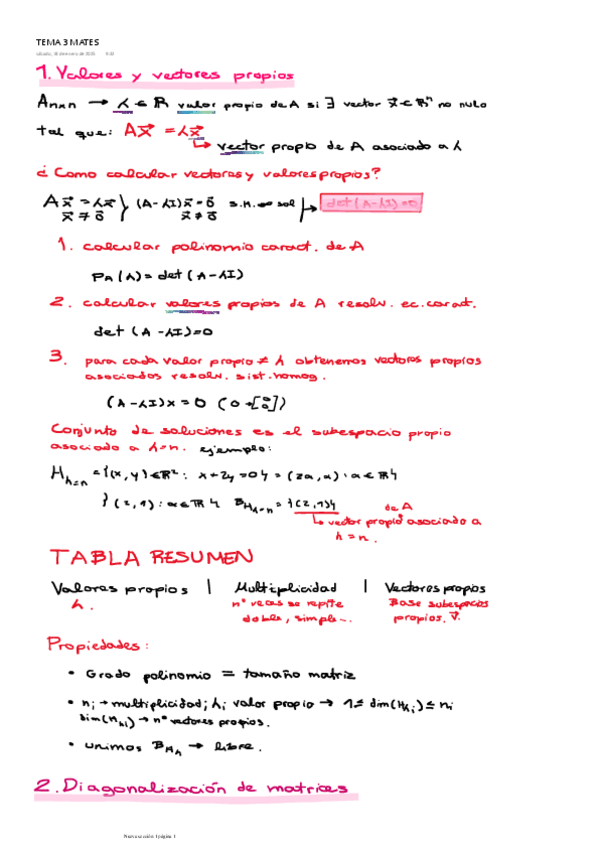 TEMA 3 MATES
1. Valores y vectores propios
Anxn → λ ∈ R valor propio de A si ∃ vector x⃗ ∈ Rⁿ no nulo
tal que: Ax⃗ = λx⃗
↳ vector propio de A asociado a λ
¿Como calcular vectores y valores propios?
Ax⃗ = λx⃗ } (A-λI)x⃗ = 0⃗ S.H. ∞ sol → det(A-λI)=0
x⃗ ≠ 0⃗ x⃗ ≠ 0⃗
1. calcular polinomio caract. de A
PA(λ) = det(A-λI)
2. calcular valores propios de A resolv. ec. caract.
det(A-λI)=0
3. para cada valor propio ≠ λ obtenemos vectores propios
asociados resolv. sist. homog.
(A-λI)x = 0 (0→[0 0])
Conjunto de soluciones es el subespacio propio
asociado a λ=n. ejemplo:
Hλ=n = {(x, y) ∈ R²: x+2y=0} = (2α, α): α ∈ R}
} (2, 1): α ∈ R} BHλ=n = {(2,1)}
de A
↳ vector propio asociado a
λ = n.
TABLA RESUMEN
Valores propios | Multiplicidad | Vectores propios
λ. nº veces se repite Base subespacios
doble, simple... propios. v⃗.
Propiedades:
• Grado polinomio = tamaño matriz
• ni → multiplicidad; λi valor propio → 1 ≤ dim(Hλi) ≤ ni
dim(Hλi) → nº vectores propios.
• unimos BHλ → libre.
2. Diagonalización de matrices